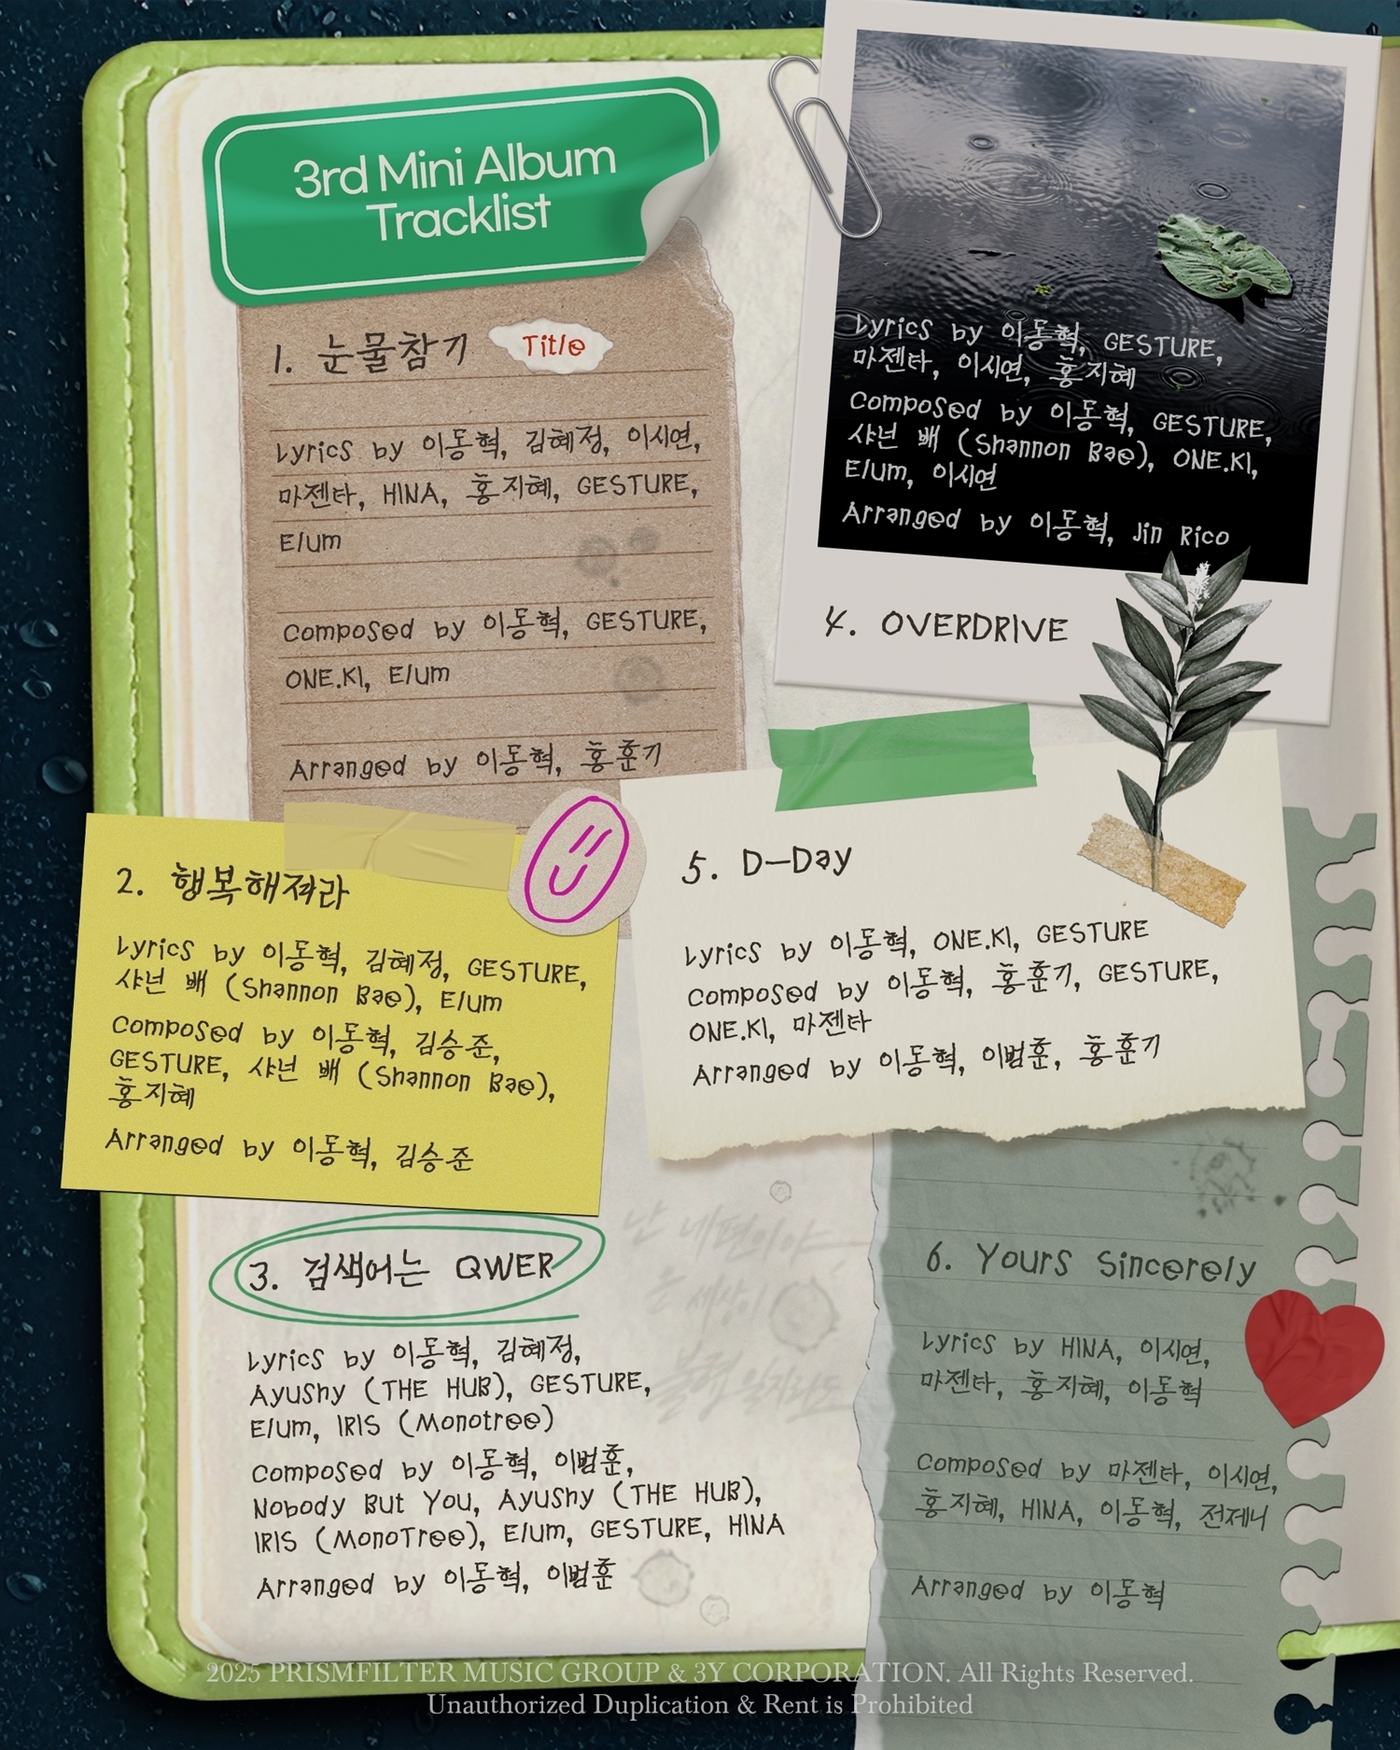 3rd Mini Album
Tracklist
1. 눈물참기
Title
Lyrics by 이동혁, 김혜정, 이시연,
마젠타, HINA, 홍지혜, GESTURE,
Elum
Composed by 이동혁, GESTURE,
ONE.KI, Elum
Arranged by 이동혁, 홍훈기
2. 행복해져라
Lyrics by 이동혁, 김혜정, GESTURE,
샤넌 배 (Shannon Bae), Elum
Composed by 이동혁, 김승준,
GESTURE, 샤넌 배 (Shannon Bae),
홍지혜
Arranged by 이동혁, 김승준
3. 검색어는 QWER
Lyrics by 이동혁, 김혜정,
Ayushy (THE HUB), GESTURE,
Elum, IRIS (Monotree)
Composed by 이동혁, 이범훈,
Nobody But You, Ayushy (THE HUB),
IRIS (MonoTree), Elum, GESTURE, HINA
Arranged by 이동혁, 이범훈
Lyrics by 이동혁, GESTURE,
마젠타, 이시연, 홍지혜
Composed by 이동혁, GESTURE,
샤넌 배 (Shannon Bae), ONE.KI,
Elum, 이시연
Arranged by 이동혁, Jin Rico
4. OVERDRIVE
5. D-Day
Lyrics by 이동혁, ONE.KI, GESTURE
Composed by 이동혁, 홍훈기, GESTURE,
ONE.KI, 마젠타
Arranged by 이동혁, 이범훈, 홍훈기
난 네편이야
은 세상이
6. Yours Sincerely
Lyrics by HINA, 이시연,
마젠타, 홍지혜, 이동혁
Composed by 마젠타, 이시연,
홍지혜, HINA, 이동혁, 전제니
Arranged by 이동혁
2025 PRISMFILTER MUSIC GROUP & 3Y CORPORATION. All Rights Reserved.
Unauthorized Duplication & Rent is Prohibited